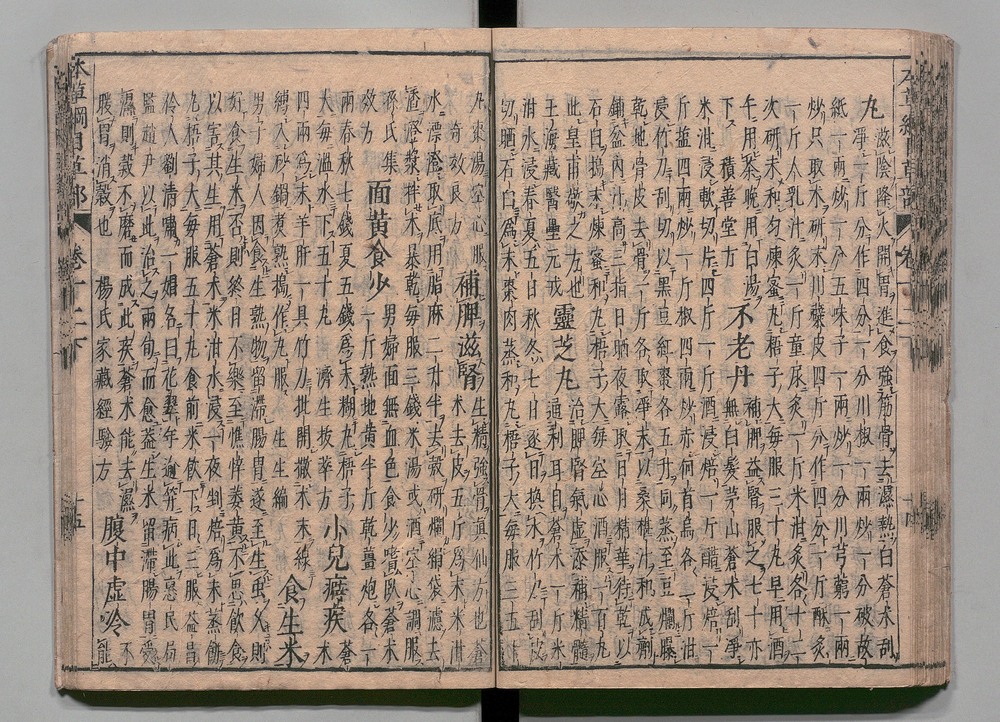 丸 滋陰降火開胃進食強筋骨去濕熱白蒼朮刮
淨一斤分作四分一分川椒一兩炒一分破故
紙一兩炒一分五味子一兩炒一分川芎藭一兩
炒只取朮研末川蘗皮四斤分作四分一斤酥炙
一斤人乳汁炙一斤童尿炙一斤米泔炙各十二
次研末和勻煉蜜丸梧子大每服三十九早用酒
午用茶晚用白湯下積善堂方 不老丹 補脾益腎服之七十亦
無白髮茅山蒼朮刮淨
米泔浸軟切片四斤一斤酒浸焙一斤醋浸焙一
斤鹽四兩炒一斤椒四兩炒赤何首烏各二斤泔
浸竹刀刮切以黑豆紅棗各五升同蒸至豆爛曝
乾地骨皮去骨一斤各取淨末以桑椹汁和成劑
鋪盆內汁高三指日晒夜露取日月精華待乾以
石臼搗末煉蜜和丸梧子大每空心酒服一百丸
此皇甫敬之方也
王海藏醫壘元戎 靈芝丸 治脾腎氣虛添補精髓
通利耳目蒼朮一斤米
泔水浸春夏五日秋冬七日逐日換水竹刀刮皮
切晒石臼為末棗肉蒸和丸梧子大每服三五十
丸棗湯空心服
奇效良方 補脾滋腎 生精強骨真仙方也蒼
朮去皮五斤為末米泔
水漂澄取底用脂麻二升半去殼研爛絹袋濾去
渣澄漿拌朮暴乾每服三錢米湯或酒空心調服
孫氏集
效方 面黃食少 男婦面無血色食少嗜臥蒼朮
一斤熟地黃半斤乾薑炮各一
兩春秋七錢夏五錢為末糊丸梧子
大每溫水下五十丸濟生拔萃方 小兒癖疾 蒼朮
四兩為末羊肝一具竹刀批開撒朮末線
縛入砂鍋煮熟搗作丸服生生編 食生米
男子婦人因食生熟物留滯腸胃遂至生蟲久則
好食生米否則終日不樂至憔悴萎黃不思飲食
以害其生用蒼朮米泔水浸一夜剉焙為末蒸餅
丸梧子大每服五十丸食前米飲下日三服益昌
伶人劉清嘯一娼名曰花翠年逾笄病此惠民局
監趙尹以此治之兩旬而愈蓋生米留滯腸胃受
濕則穀不磨而成此疾蒼朮能去濕
暖胃消穀也楊氏家藏經驗方 腹中虛冷 不
能
本草綱目草部 卷十二下 十五